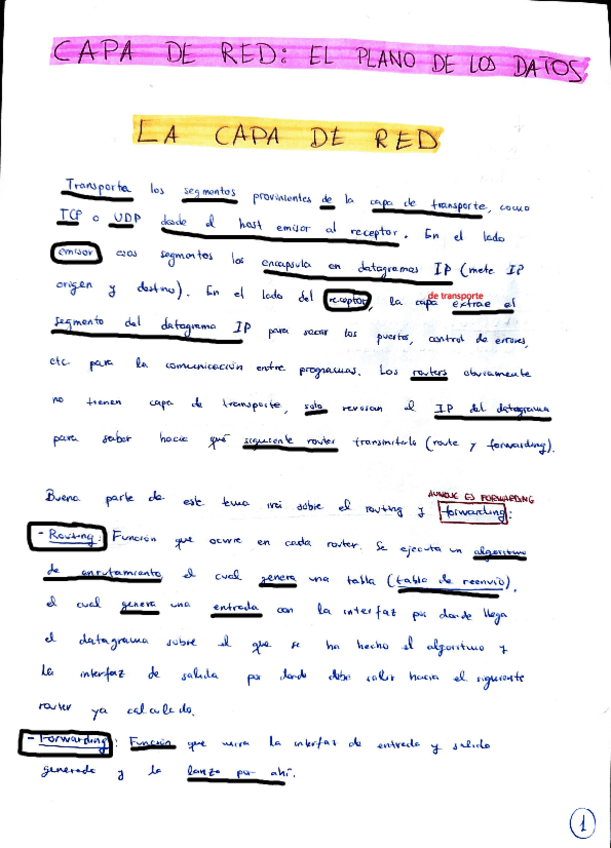 CAPA DE RED: EL PLANO DE LOS DATOS
LA CAPA DE RED
Transporta los segmentos provinientes de la capa de transporte, como
TCP o UDP desde el host emisor al receptor. En el lado
emisor esos segmentos los encapsula en datagramas IP (mete IP
origen y destino). En el lado del receptor, la capa de transporte extrae el
segmento del datagrama IP para sacar los puertos, control de errores,
etc para la comunicación entre programas. Los routers obviamente
no tienen capa de transporte, solo revisan el IP del datagrama
para saber hacia qué siguiente router transmitirlo (route y forwarding).
AUNQUE ES FORWARDING
Buena parte de este tema irá sobre el routing y forwarding:
- Routing: Función que ocurre en cada router. Se ejecuta un algoritmo
de enrutamiento el cual genera una tabla (tabla de reenvío),
el cual genera una entrada con la interfaz por donde llega
el datagrama sobre el que se ha hecho el algoritmo y
la interfaz de salida por donde debe salir hacia el siguiente
router ya calculado.
- Forwarding: Función que mira la interfaz de entrada y salida
generada y la lanza por ahí.
1